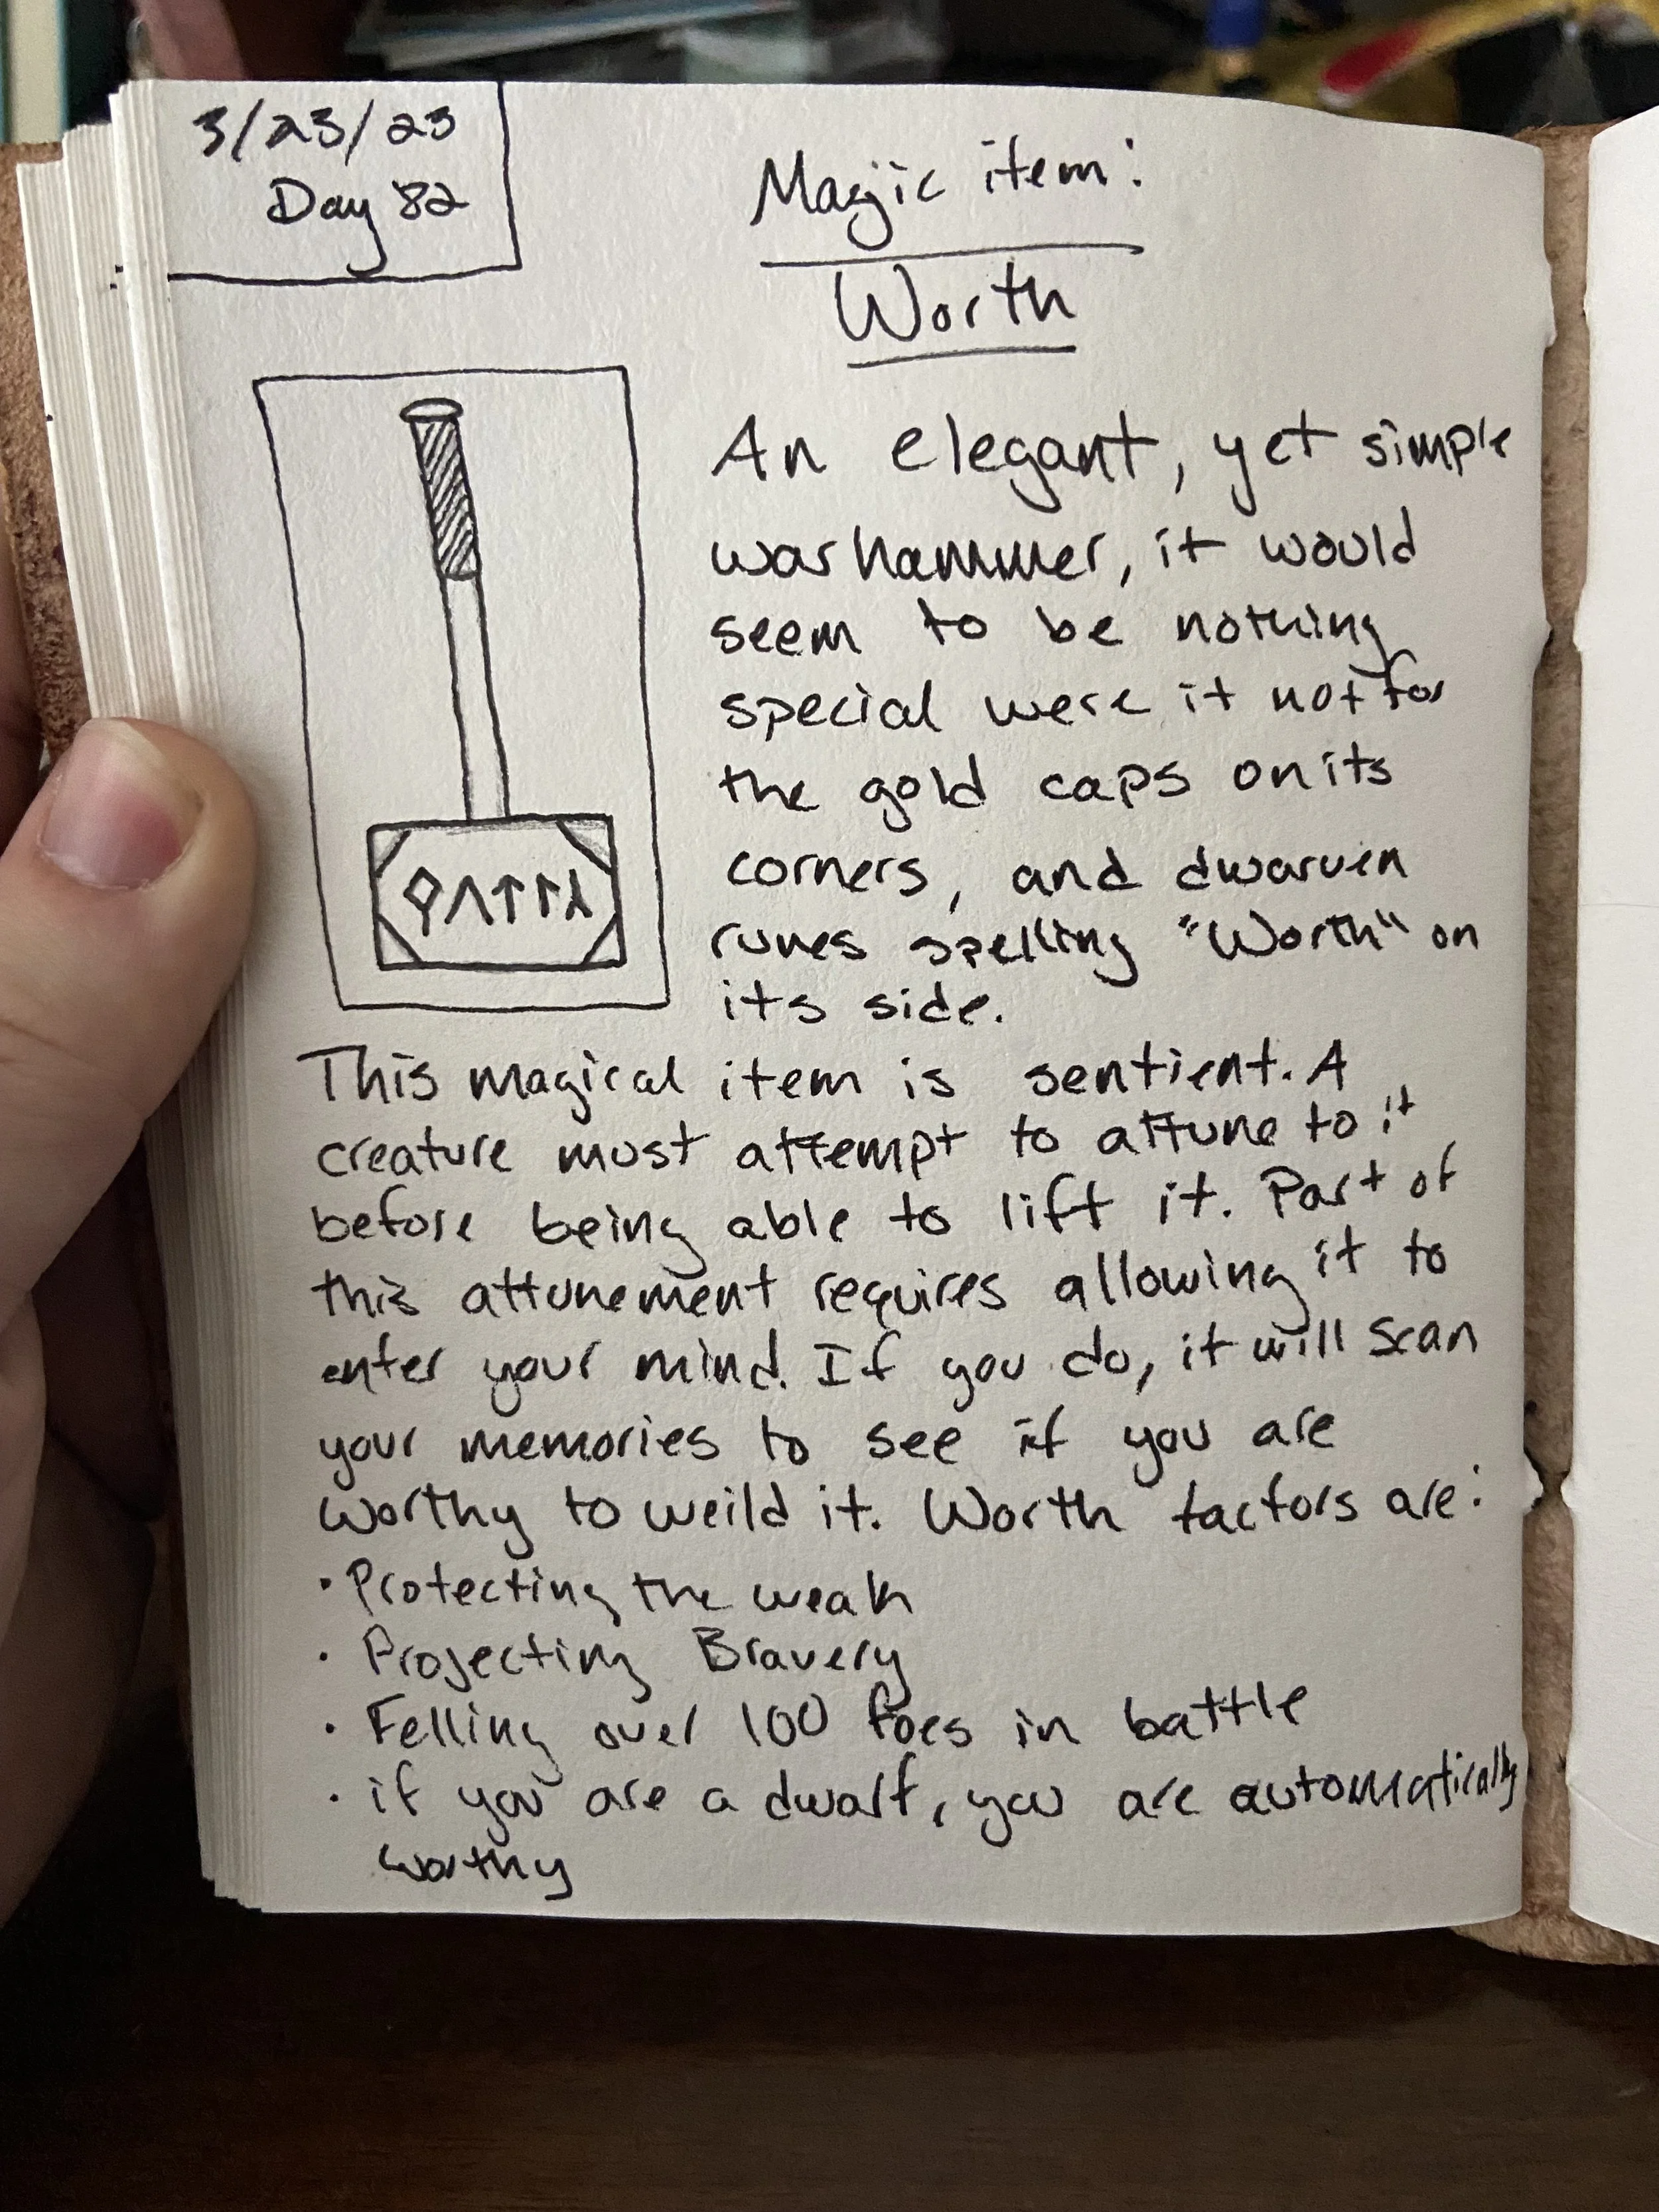 3/23/23
Day 82
Magic item:
Worth
An elegant, yet simple
warhammer, it would
seem to be nothing
special were it not for
the gold caps on its
corners, and dwarven
runes spelling "Worth" on
its side.
This magical item is sentient. A
creature must attempt to attune to it
before being able to lift it. Part of
this attunement requires allowing it to
enter your mind. If you do, it will scan
your memories to see if you are
worthy to weild it. Worth factors are:
· Protecting the weak
· Projecting Bravery
· Felling over 100 foes in battle
· if you are a dwarf, you are automatically
worthy